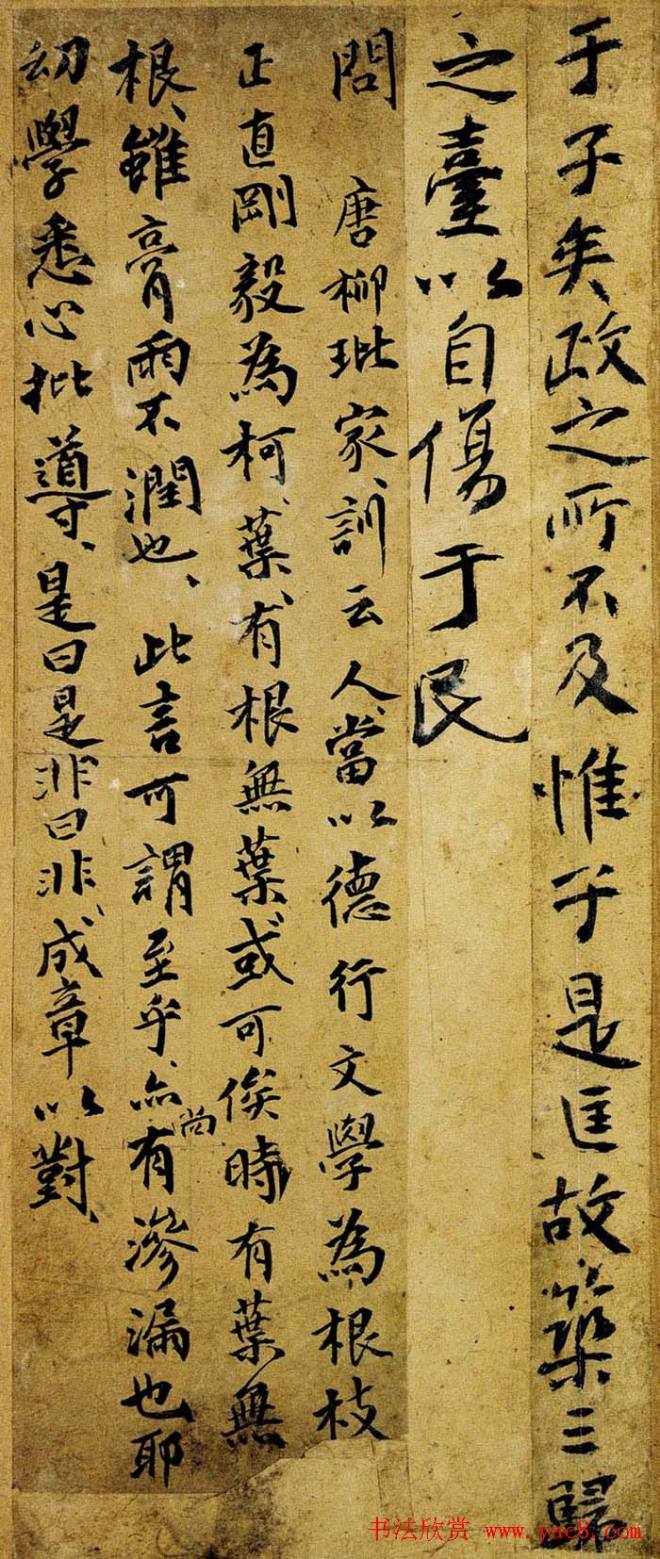 于子矣政之所不及惟于是匡故築三歸
之臺以自傷于民
問 唐柳玭家訓云人當以德行文學為根枝
正直剛毅為柯、葉、有根無葉或可俟時有葉無
根、雖膏雨不潤也、此言可謂至乎、亦尚有滲漏也耶
幼學悉心批導、是曰是非曰非、成章以對、
书法欣赏 www.yac8.com